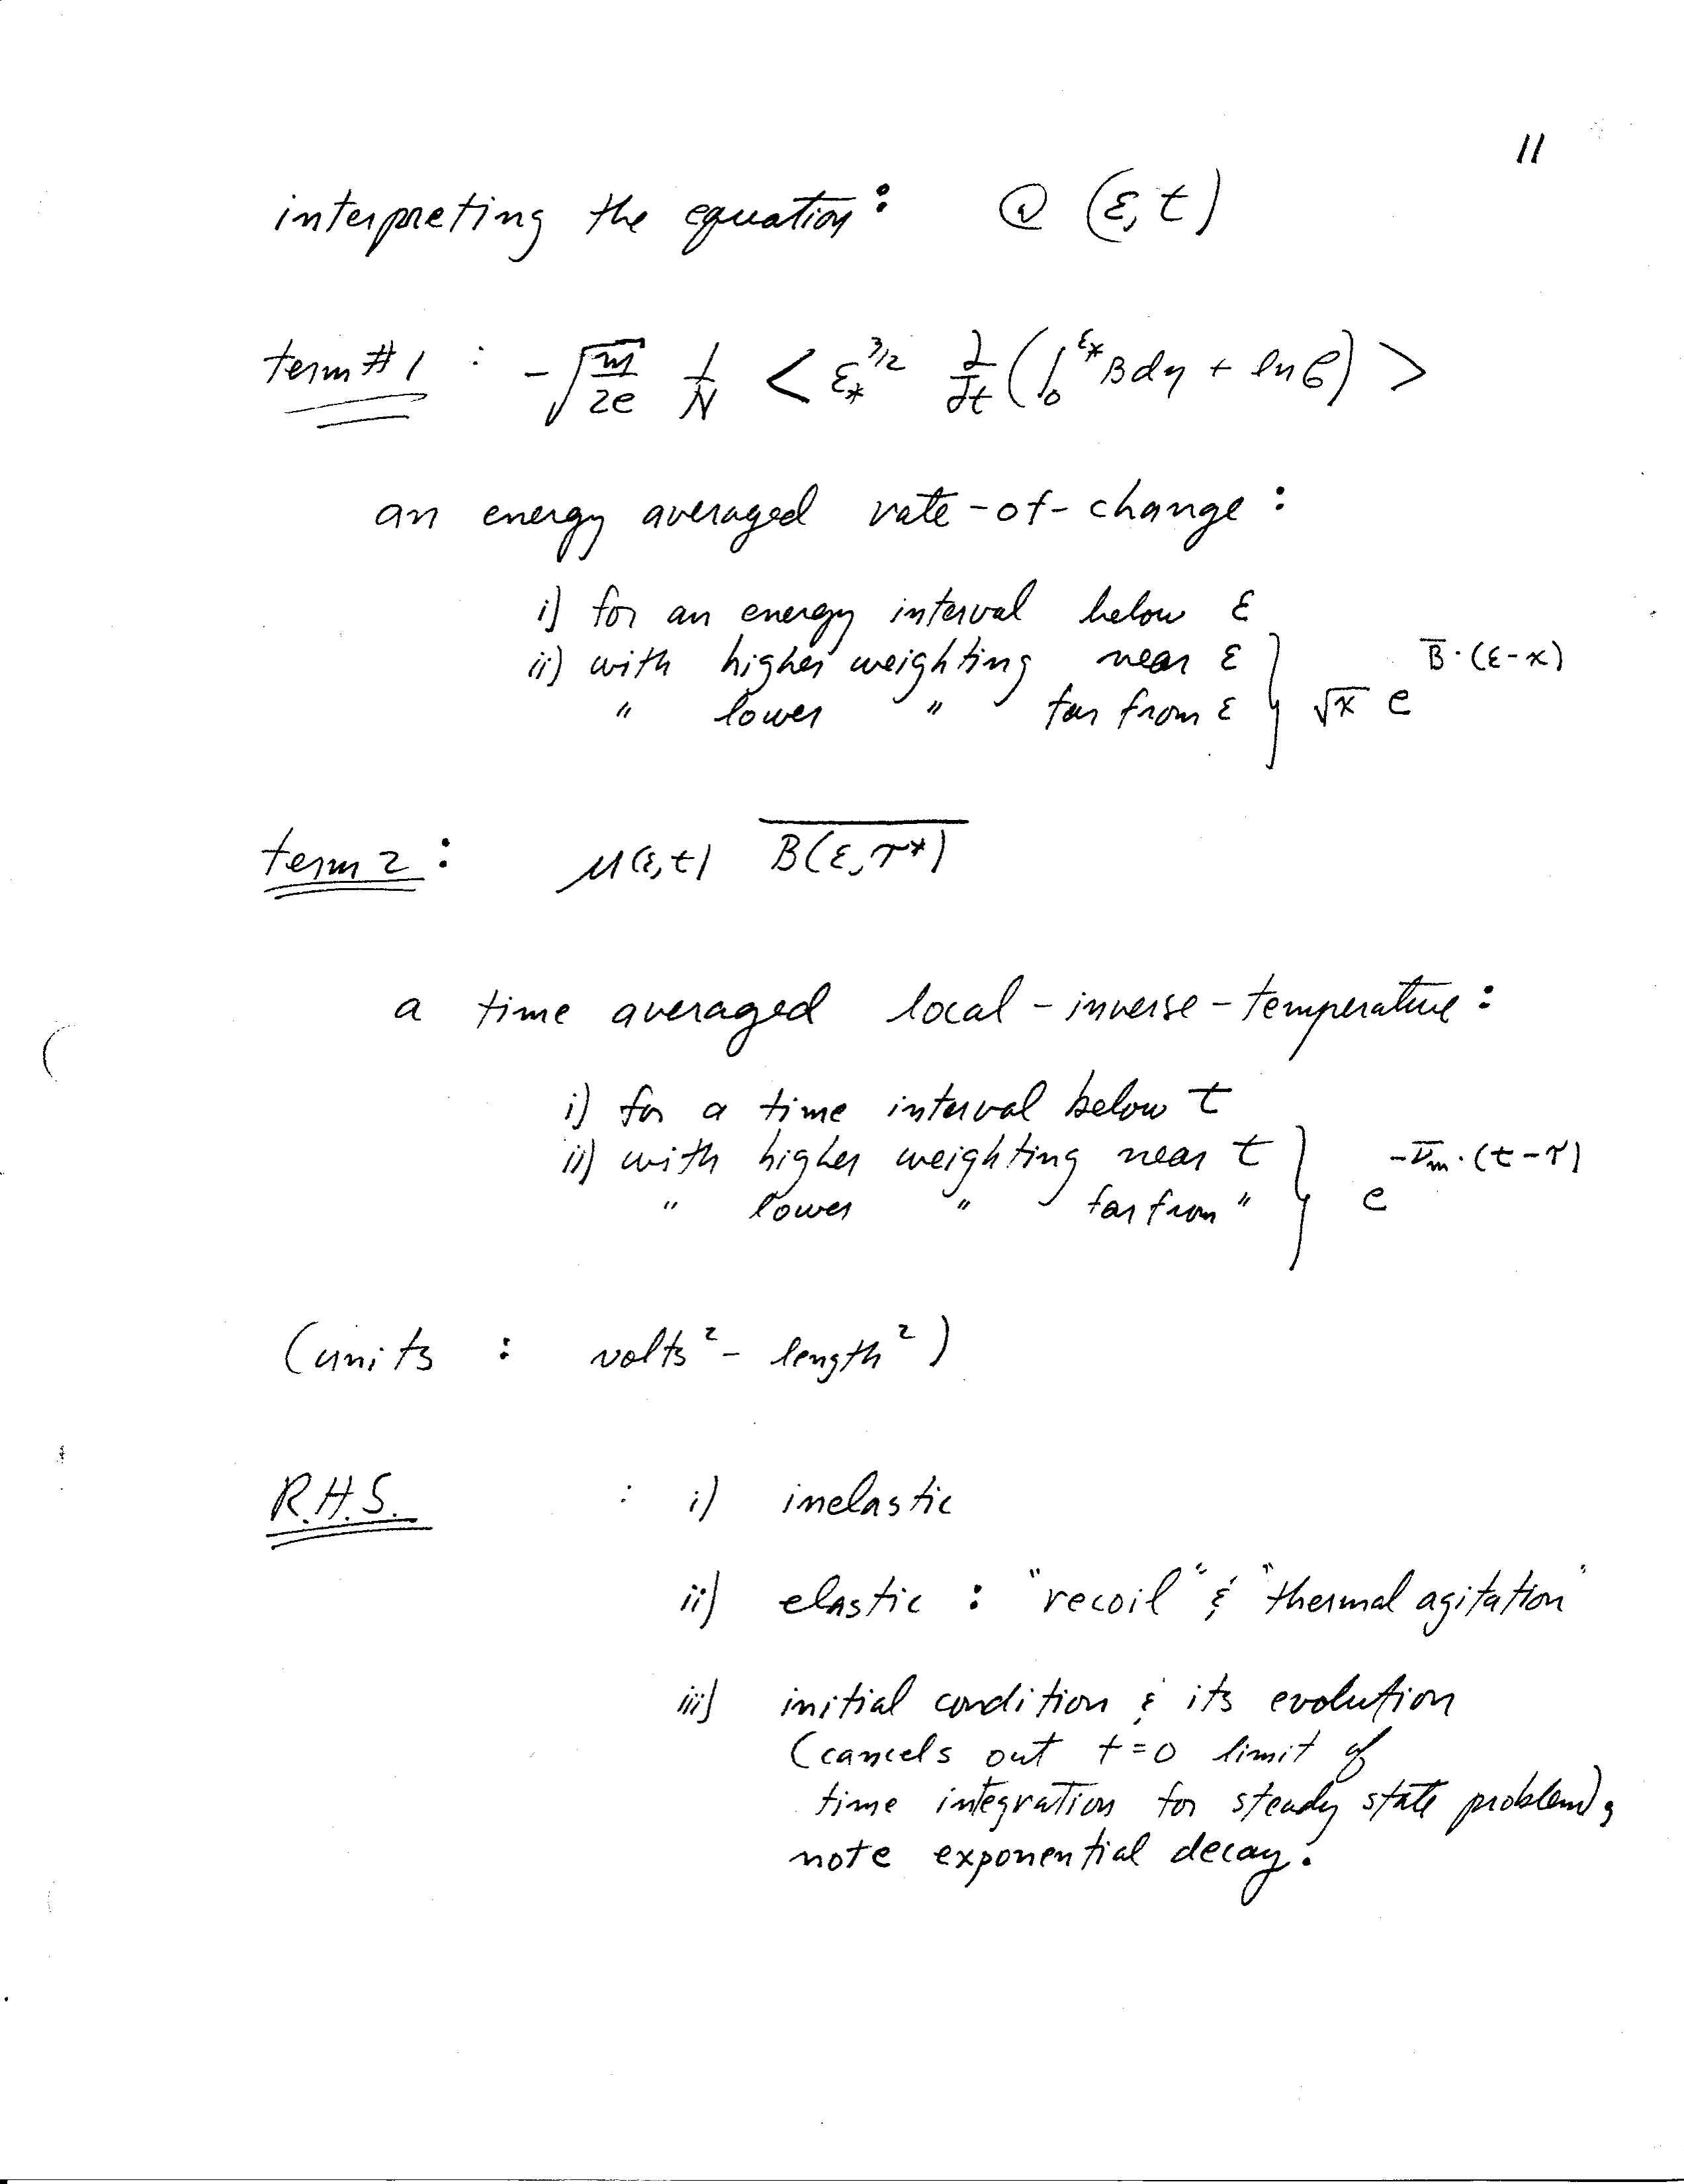 11
interpreting the equation: @ (ε, t)
term #1 : -√(m/2e) 1/N < ε*^3/2 ∂/∂t (∫₀^ε* B dη + ln β) >
an energy averaged rate-of-change:
i) for an energy interval below ε
ii) with higher weighting near ε } √x e^B̅·(ε-x)
" lower " far from ε
term 2: μ(ε,t) B(ε,τ*)
a time averaged local-inverse-temperature:
i) for a time interval below t
ii) with higher weighting near t } e^-ν̅m·(t-τ)
" lower " far from "
(units : volts² - length²)
R.H.S. : i) inelastic
ii) elastic : "recoil" & "thermal agitation"
iii) initial condition & its evolution
(cancels out t=0 limit of
time integration for steady state problem),
note exponential decay.